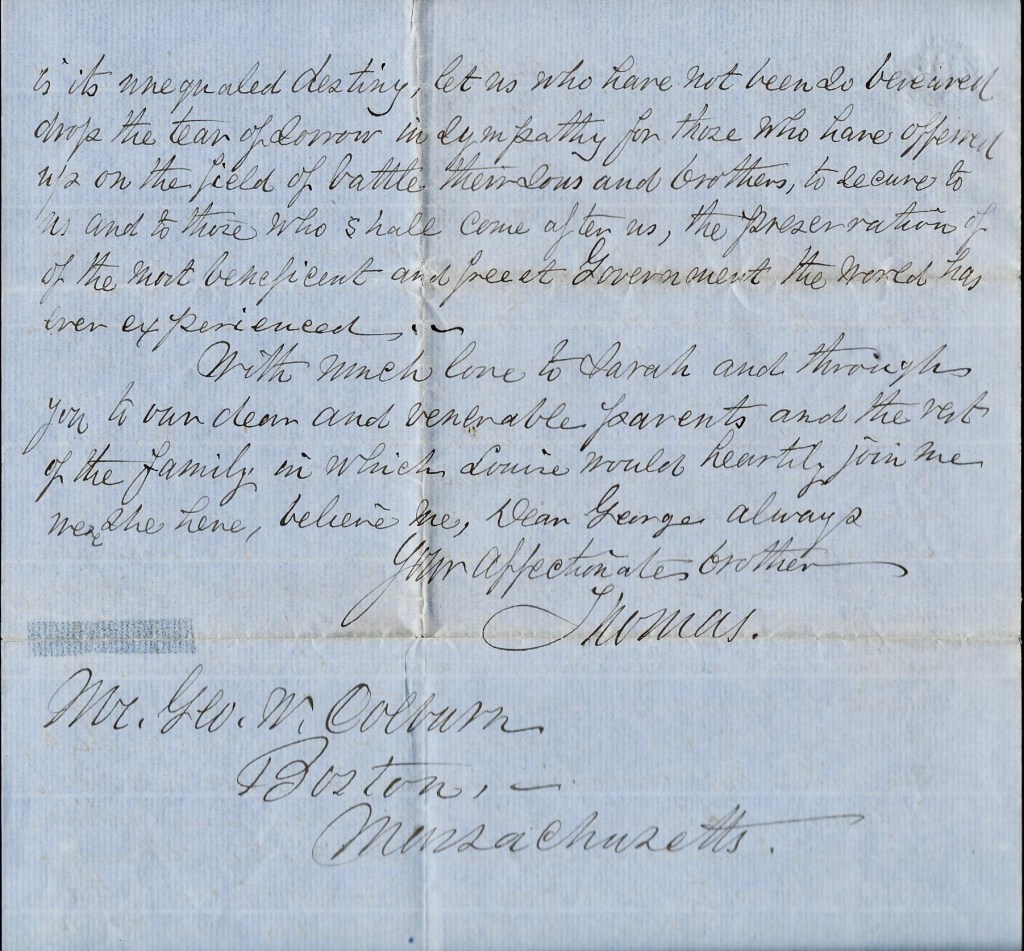 is its unequaled destiny, let us who have not been so bereaved
drop the tear of sorrow in sympathy for those who have offerred
up on the field of battle their sons and brothers, to secure to
us and to those who shall come after us, the preservation of
of the most beneficent and freest Government the world has
ever experienced.
With much love to Sarah and through
you to our dear and venerable parents and the rest
of the family in which Louise would heartily join me
were she here, believe me, Dear George always
Your affectionate brother
Thomas.
Mr. Geo. W. Colburn
Boston, —
Massachusetts.